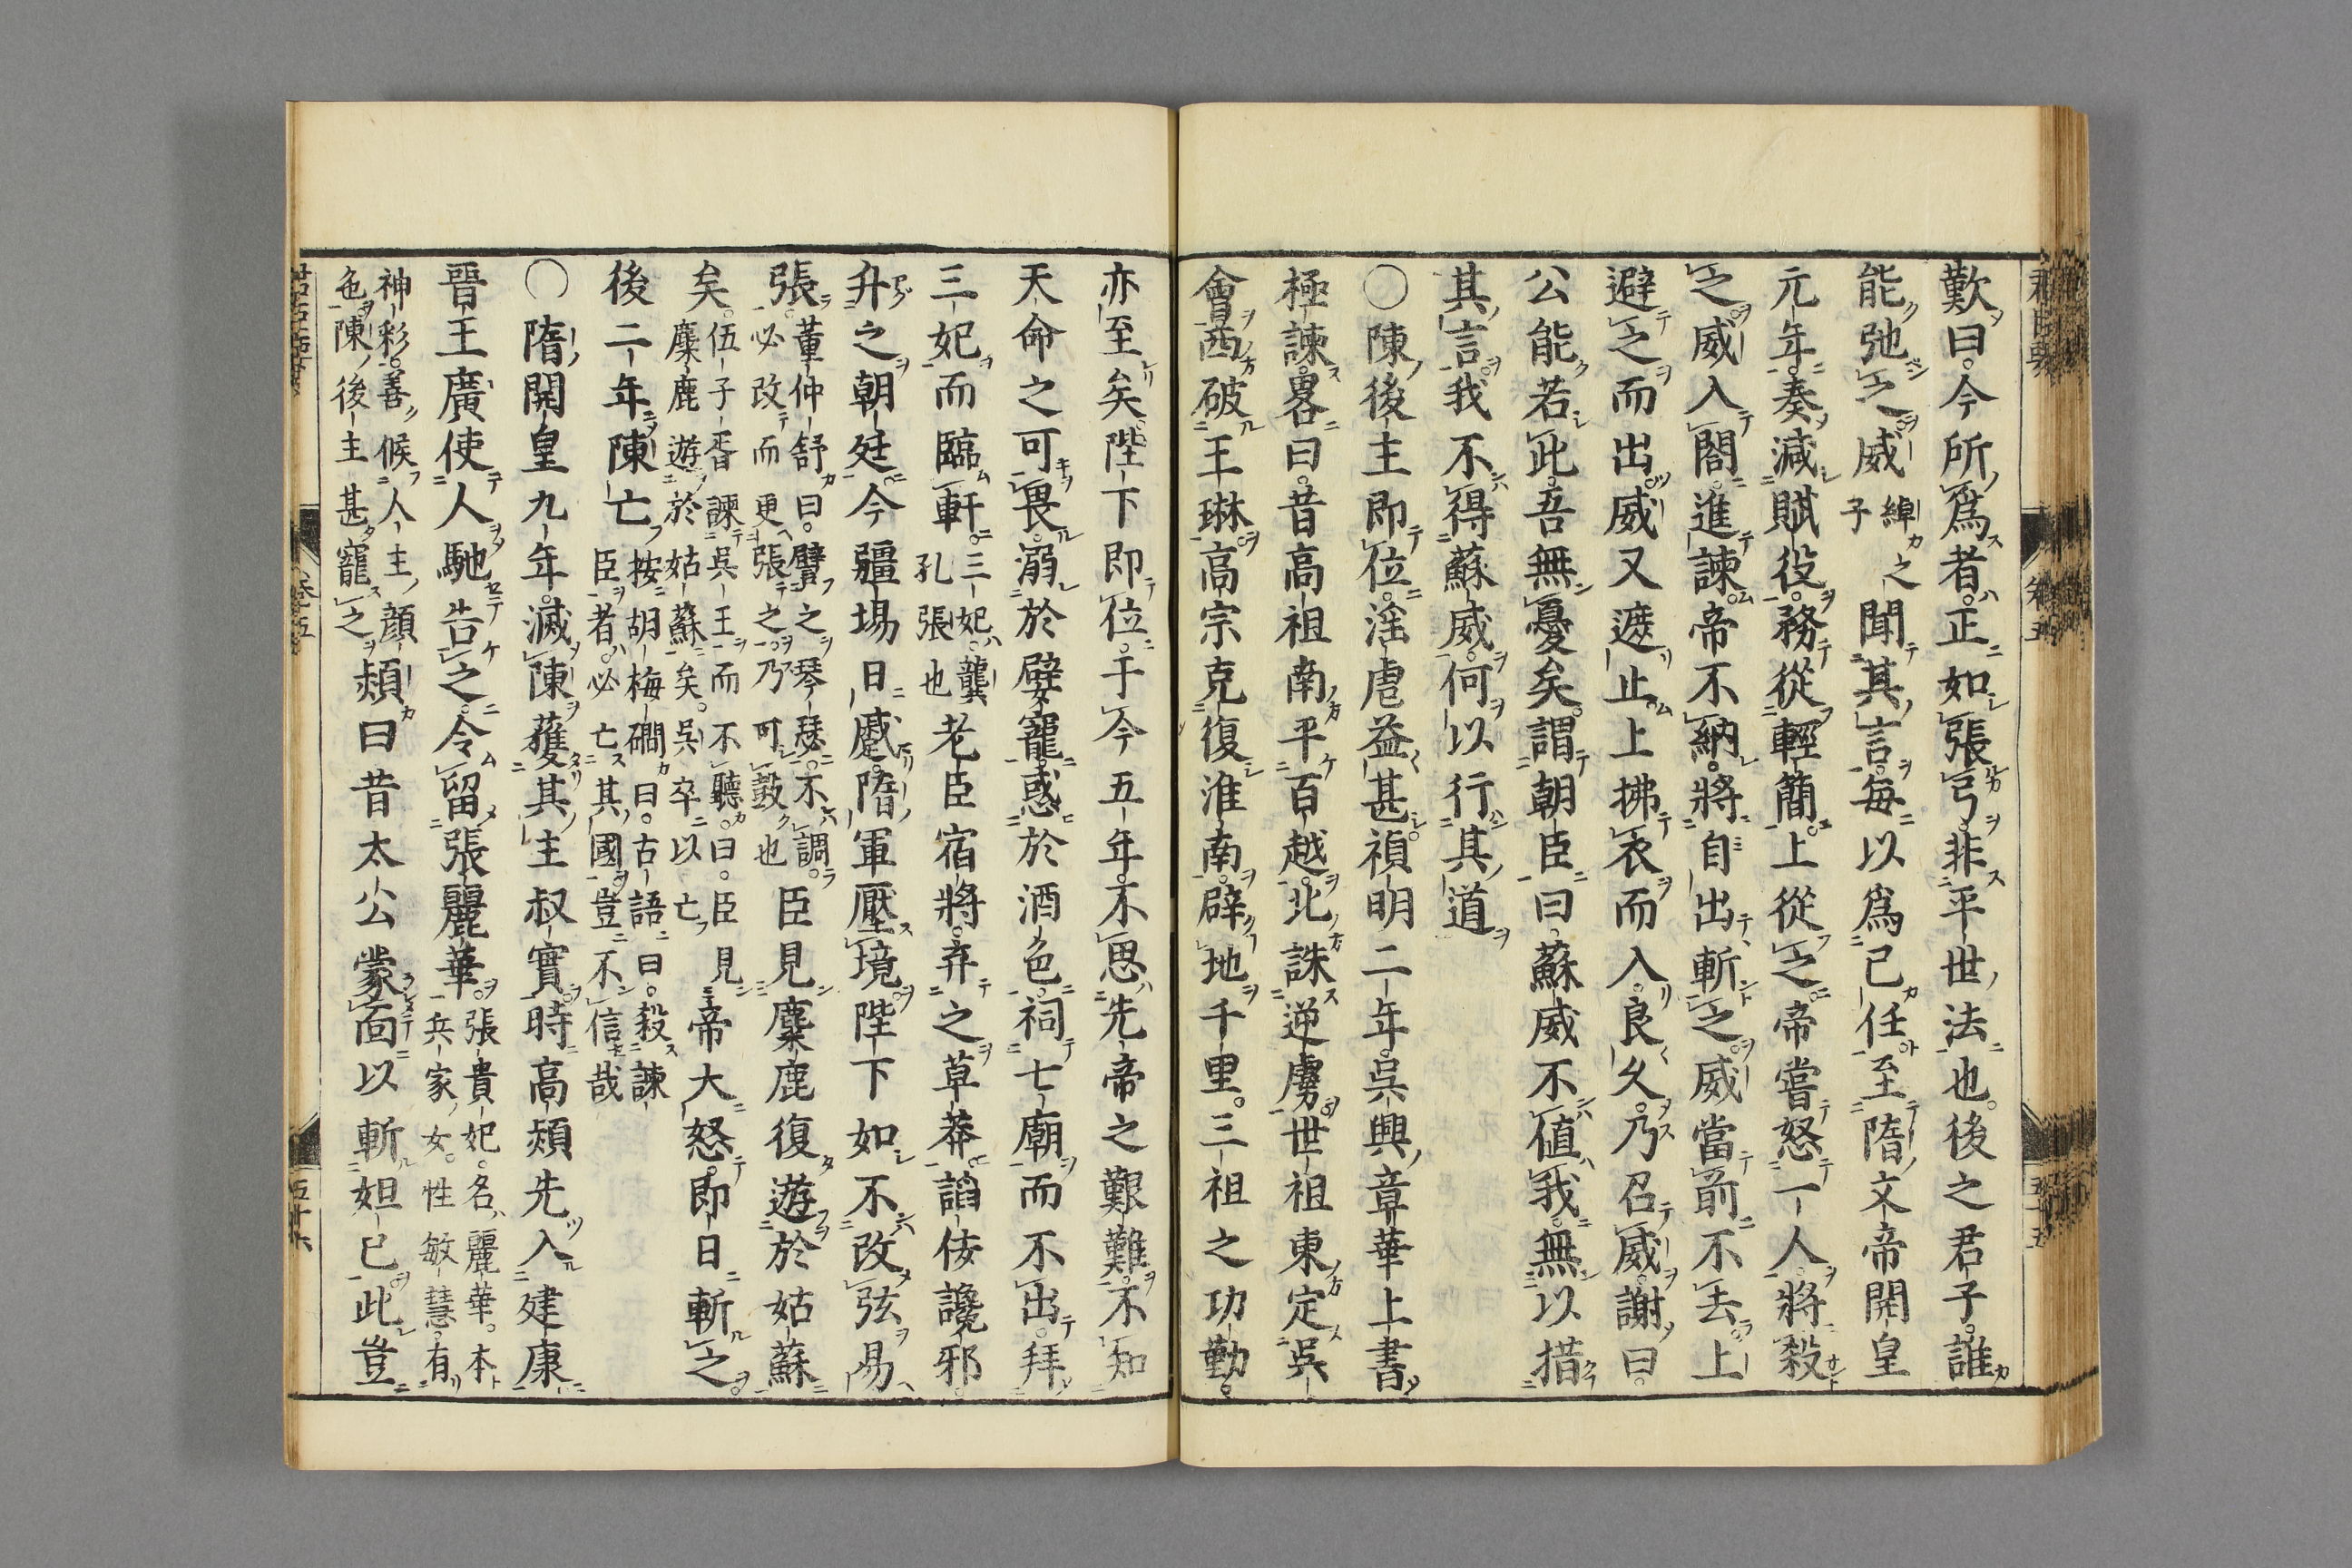 歎曰今所爲者正如張弓非平世法也後之君子誰
能弛之威綽之子聞其言每以爲己任至隋文帝開皇
元年奏減賦役務從輕簡上從之帝嘗怒一人將殺
之威入閤進諫帝不納將自出斬之威當前不去上
避之而出威又遮止上拂衣而入良久乃召威謝曰
公能若此吾無憂矣謂朝臣曰蘇威不値我無以措
其言我不得蘇威何以行其道
〇陳後主即位淫虐益甚禎明二年吳興章華上書
極諫畧曰昔高祖南平百越北誅逆虜世祖東定吳
會西破王琳高宗克復淮南辟地千里三祖之功勤
亦至矣陛下即位于今五年不思先帝之艱難不知
天命之可畏溺於嬖寵惑於酒色祠七廟而不出拜
三妃而臨軒三妃龔孔張也老臣宿將弃之草莽諂佞讒邪
升之朝廷今疆場日蹙隋軍壓境陛下如不改弦易
張董仲舒曰譬之琴瑟不調必改而更張之乃可鼓也臣見麋鹿復遊於姑蘇
矣伍子胥諫吳王而不聽曰臣見麋鹿遊於姑蘇矣吳卒以亡帝大怒即日斬之
後二年陳亡按胡梅磵曰古語曰殺諫臣者必亡其國豈不信哉
〇隋開皇九年滅陳獲其主叔寶時高熲先入建康
晉王廣使人馳告之令留張麗華張貴妃名麗華本兵家女性敏慧有
神彩善候人主顔色陳後主甚寵之熲曰昔太公蒙面以斬妲己此豈
卷五
五十六